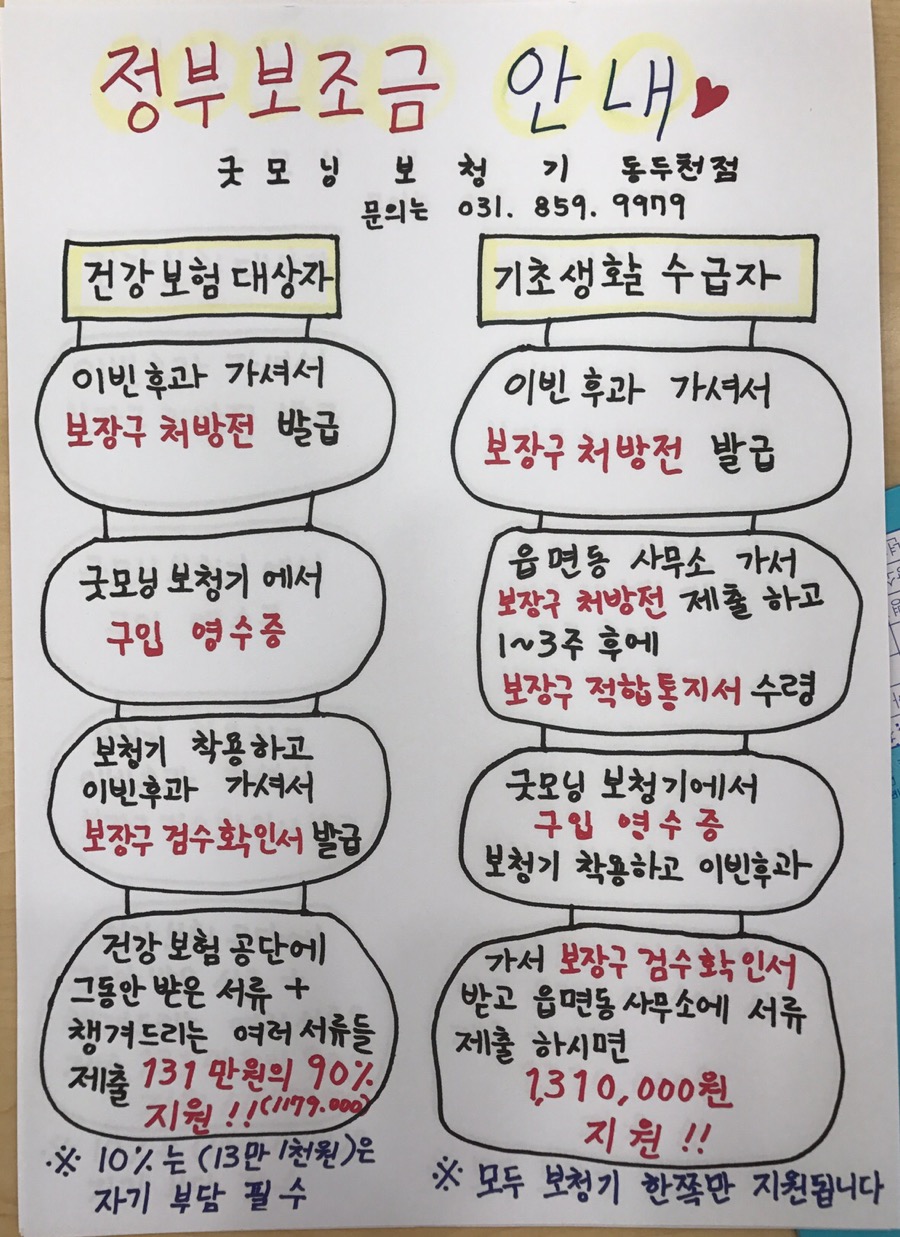 정부보조금 안내
굿모닝 보청기 동두천점
문의는 031. 859. 9979
건강보험대상자
이빈후과 가셔서
보장구 처방전 발급
굿모닝보청기에서
구입 영수증
보청기 착용하고
이빈후과 가셔서
보장구 검수확인서 발급
건강보험공단에
그동안 받은 서류 +
챙겨드리는 여러서류들
제출 131만원의 90%
지원!! (1179.000)
※ 10%는 (13만1천원)은
자기 부담 필수
기초생활 수급자
이빈후과 가셔서
보장구 처방전 발급
읍면동 사무소 가서
보장구 처방전 제출 하고
1~3주 후에
보장구 적합통지서 수령
굿모닝 보청기에서
구입 영수증
보청기 착용하고 이빈후과
가서 보장구 검수확인서
받고 읍면동사무소에 서류
제출 하시면
1,310,000원
지원!!
※ 모두 보청기 한쪽만 지원됩니다